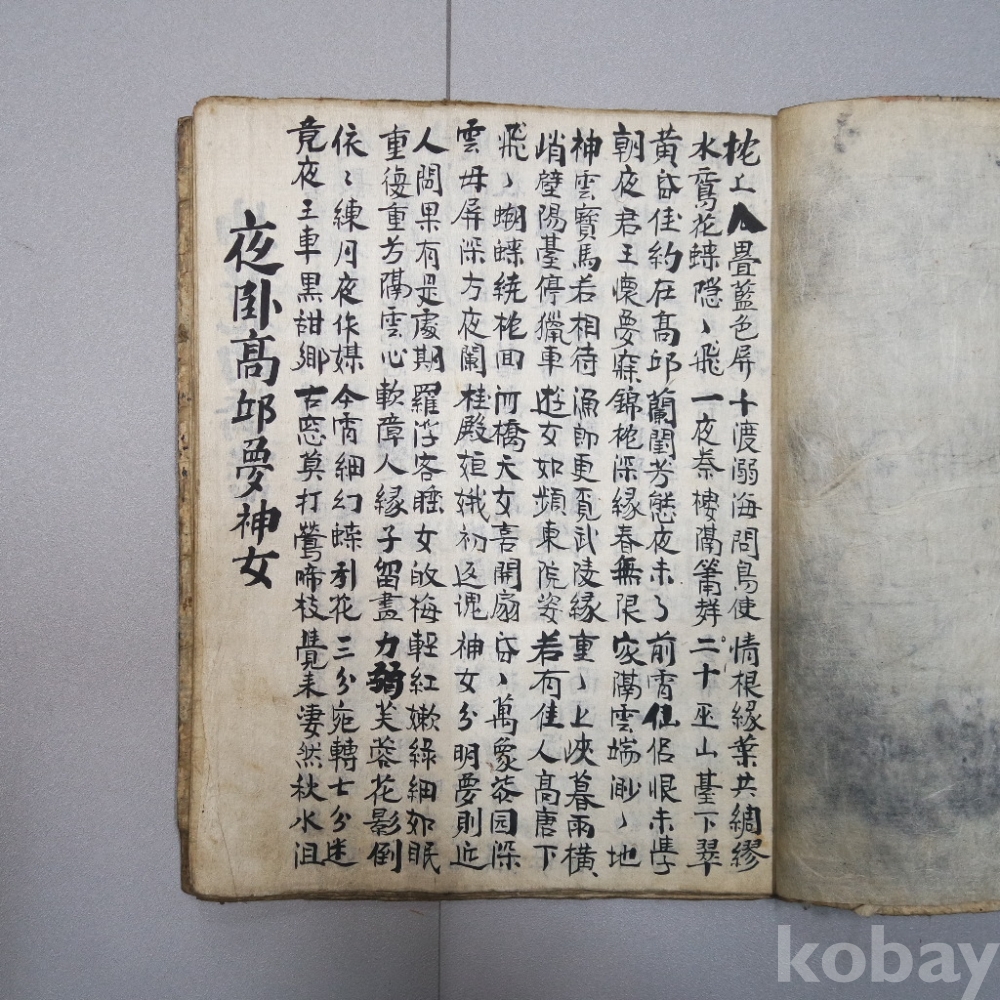 枕上八疊藍色屏十渡溺海問鳥使情根緣葉共綢繆
水鴛花蝶隱〻飛一夜秦樓隔簫群二十巫山臺下翠
黃昏佳約在高邱蘭閨芳態夜未了前宵仙侶恨未學
朝夜君王懷夢寐錦枕深緣春無限家隔雲端渺〻地
神雲寶馬若相待漁郎更覓武陵緣重〻上峽暮雨橫
峭壁陽臺停獵車遊女如頻東院姿若有佳人高唐下
飛〻蝴蝶繞枕回河橋天女喜開扇昏〻萬象茶园深
雲母屏深方夜闌桂殿姮娥初返魂神女分明夢則近
人間果有是處期羅浮客睡女的梅輕紅嫩綠細如眠
重復重芳隔雲心軟障人緣子留盡力弱芙蓉花影倒
依〻練月夜作媒今宵細幻蝶引花三分宛轉士分迷
竟夜王車黑甜鄉古窓莫打鶯啼枝覺來凄然秋水沮
夜卧高邱夢神女
kobay